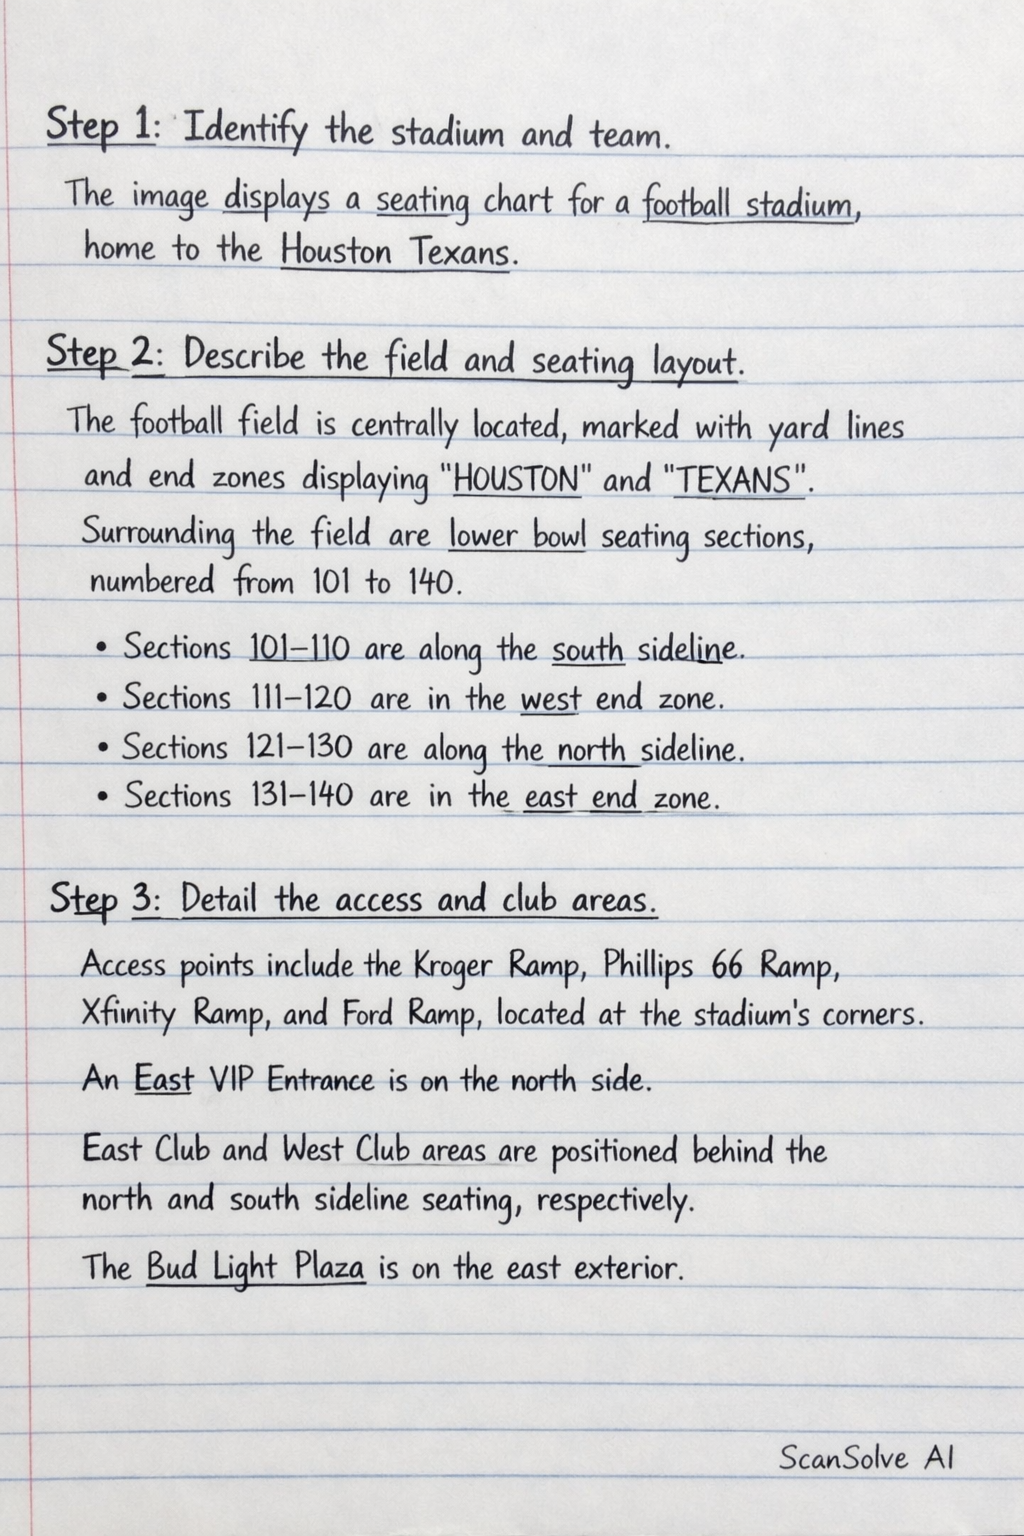 Step 1: Identify the stadium and team.
The image displays a seating chart for a football stadium,
home to the Houston Texans.
Step 2: Describe the field and seating layout.
The football field is centrally located, marked with yard lines
and end zones displaying "HOUSTON" and "TEXANS".
Surrounding the field are lower bowl seating sections,
numbered from 101 to 140.
• Sections 101–110 are along the south sideline.
• Sections 111–120 are in the west end zone.
• Sections 121–130 are along the north sideline.
• Sections 131–140 are in the east end zone.
Step 3: Detail the access and club areas.
Access points include the Kroger Ramp, Phillips 66 Ramp,
Xfinity Ramp, and Ford Ramp, located at the stadium's corners.
An East VIP Entrance is on the north side.
East Club and West Club areas are positioned behind the
north and south sideline seating, respectively.
The Bud Light Plaza is on the east exterior.
ScanSolve AI